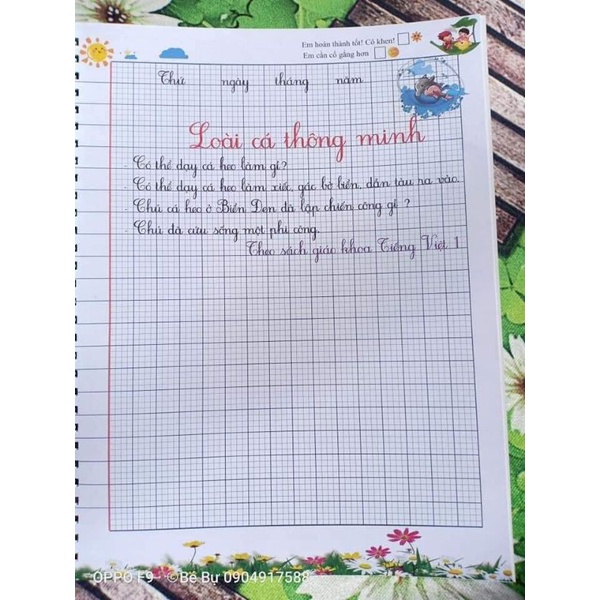 Em hoàn thành tốt! Cô khen!
Em cần cố gắng hơn
Thứ ngày tháng năm
Loài cá thông minh
- Có thể dạy cá heo làm gì?
- Có thể dạy cá heo làm xiếc, gác bờ biển, dẫn tàu ra vào.
- Chú cá heo ở Biển Đen đã lập chiến công gì ?
- Chú đã cứu sống một phi công.
Theo sách giáo khoa Tiếng Việt 1
OPPO F9 · ©Bé Bự 0904917588